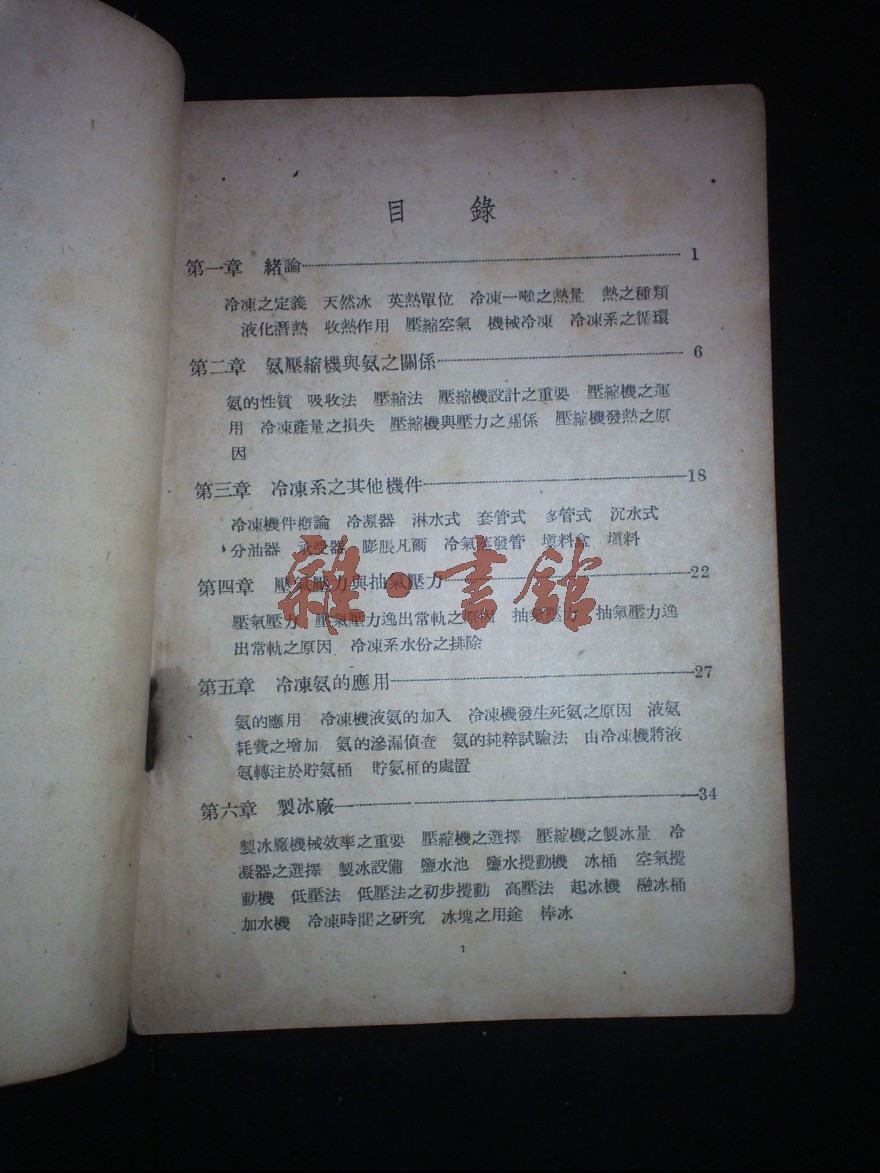 目錄
第一章 緒論 1
冷凍之定義 天然冰 英熱單位 冷凍一噸之熱量 熱之種類
液化潛熱 收熱作用 壓縮空氣 機械冷凍 冷凍系之循環
第二章 氨壓縮機與氨之關係 6
氨的性質 吸收法 壓縮法 壓縮機設計之重要 壓縮機之運
用 冷凍產量之損失 壓縮機與壓力之關係 壓縮機發熱之原
因
第三章 冷凍系之其他機件 18
冷凍機件概論 冷凝器 淋水式 套管式 多管式 沉水式
分油器 承受器 膨脹凡爾 冷氣蒸發管 填料盒 填料
第四章 壓氣壓力與抽氣壓力 22
壓氣壓力 壓氣壓力逸出常軌之原因 抽氣壓力 抽氣壓力逸
出常軌之原因 冷凍系水份之排除
第五章 冷凍氨的應用 27
氨的應用 冷凍機液氨的加入 冷凍機發生死氨之原因 液氨
耗費之增加 氨的滲漏偵查 氨的純粹試驗法 由冷凍機將液
氨轉注於貯氨桶 貯氨桶的處置
第六章 製冰廠 34
製冰廠機械效率之重要 壓縮機之選擇 壓縮機之製冰量 冷
凝器之選擇 製冰設備 鹽水池 鹽水攪動機 冰桶 空氣攪
動機 低壓法 低壓法之初步攪動 高壓法 起冰機 融冰桶
加水機 冷凍時間之研究 冰塊之用途 棒冰
1
雜·書館